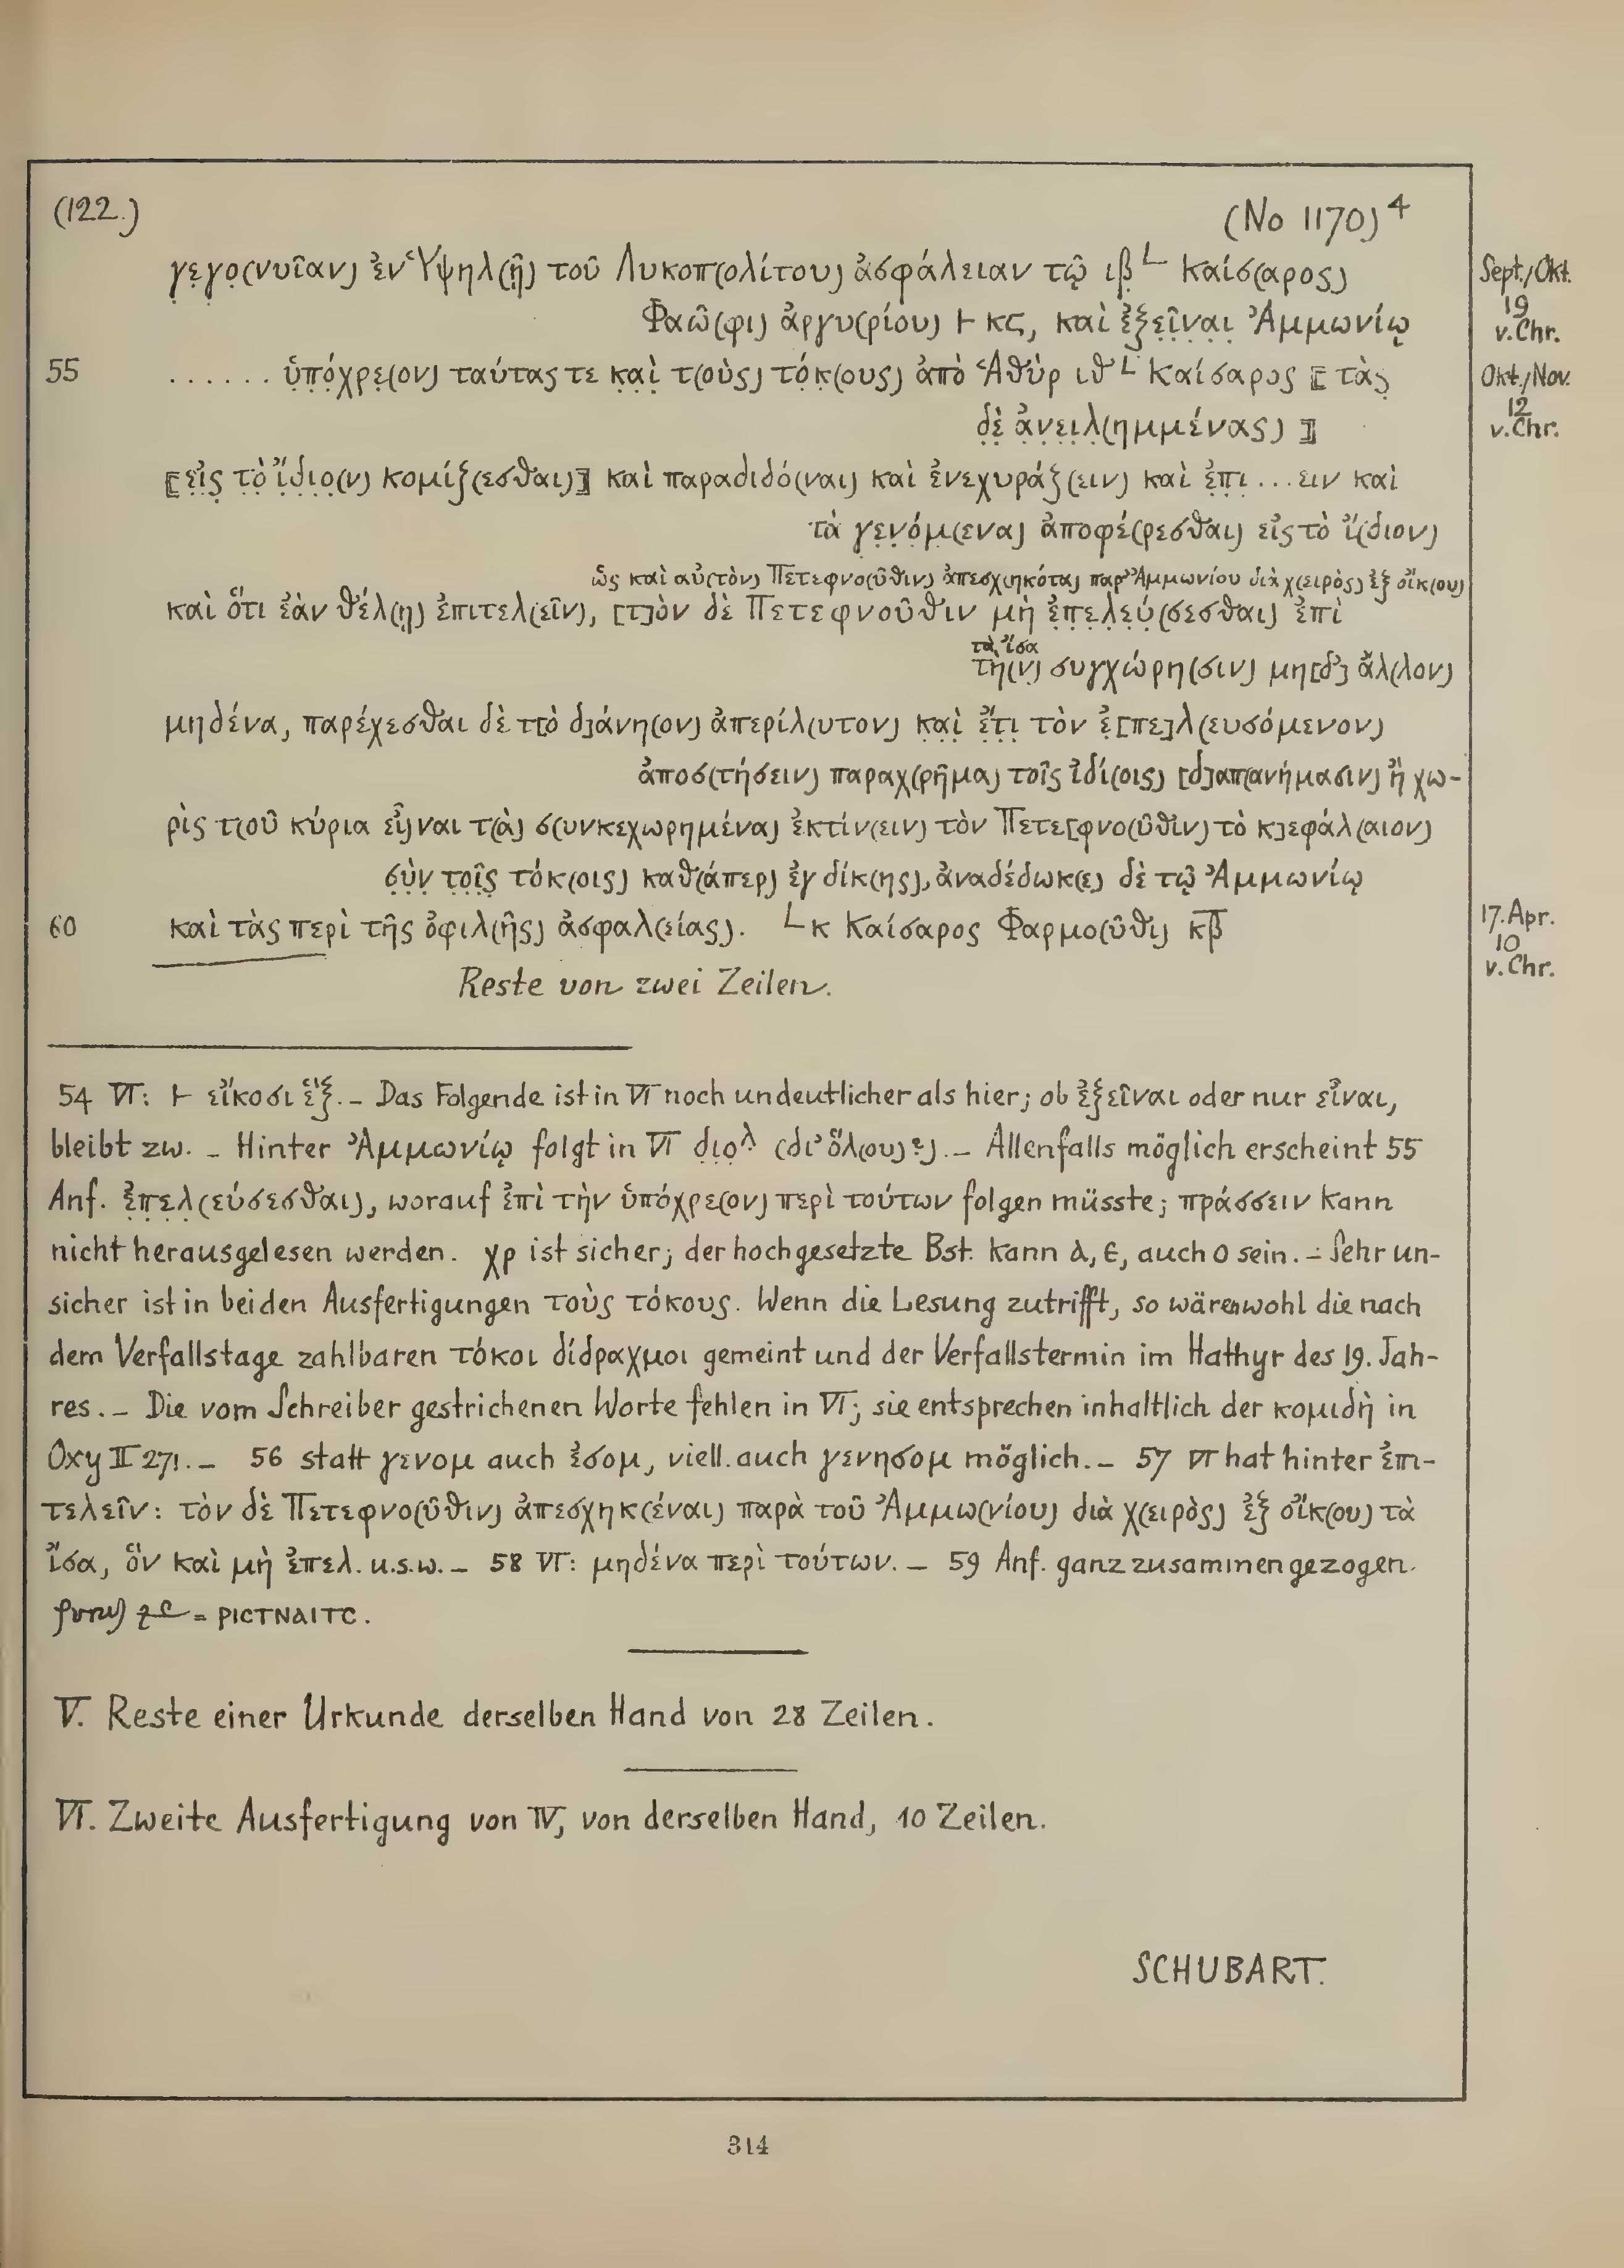 (122.) (No 1170) 4
γ̣ε̣γο̣(νυῖαν) ἐν Ὑψηλ(ῇ) τοῦ Λυκοπ(ολίτου) ἀσφάλειαν τῷ ιβ̣ L Καίσ(αρος) Sept./Okt. 19 v.Chr.
Φαῶ(φι) ἀργυ(ρίου) 𐅂 κϛ, καὶ ἐ̣ξ̣ε̣ῖ̣ν̣α̣ι̣ Ἀμμωνίῳ
55 . . . . . . ὑ̣π̣ό̣χρε̣(ον) ταύτας τε κ̣α̣ὶ̣ τ(οὺς) τό̣κ̣(ους) ἀπὸ Ἁθὺρ ιθ L Καίσαρος ⟦τὰς̣ Okt./Nov. 12 v.Chr.
δ̣ὲ̣ ἀ̣ν̣ε̣ι̣λ̣(ημμένας)⟧
⟦ε̣ἰ̣ς̣ τ̣ὸ̣ ἴ̣δ̣ι̣ο̣(ν) κομίζ(εσθαι)⟧ καὶ παραδιδό(ναι) καὶ ἐνεχυράζ(ειν) καὶ ἐ̣π̣ι̣ . . . ειν καὶ
τὰ γε̣ν̣ό̣μ(ενα) ἀποφέ(ρεσθαι) εἰς τὸ ἴ(διον)
ὡς καὶ αὐ(τὸν) Πετεφνο(ῦθιν) ἀπεσχ(ηκότα) παρʼ Ἀμμωνίου διὰ χ(ειρὸς) ἐξ οἴκ(ου)
καὶ ὅτι ἐὰν θέλ(ῃ) ἐπιτελ(εῖν), [τ]ὸν δὲ Πετεφνοῦθιν μὴ ἐ̣π̣ε̣λ̣ε̣ύ̣(σεσθαι) ἐπὶ
τὰ ἴσα
τὴ(ν) συγχώρη(σιν) μη[δʼ] ἄλ(λον)
μηδένα, παρέχεσθαι δὲ τ[ὸ δ]άνη(ον) ἀπερίλ(υτον) κ̣α̣ὶ̣ ἔ̣τ̣ι̣ τὸν ἐ̣[πε]λ(ευσόμενον)
ἀποσ(τήσειν) παραχ(ρῆμα) τοῖς ἰδί(οις) [δ]απ(ανήμασιν) ἢ χω-
ρὶς τ(οῦ κύρια εἶ)ναι τ(ὰ) σ(υνκεχωρημένα) ἐκτίν(ειν) τὸν Πετε[φνο(ῦθιν) τὸ κ]εφάλ(αιον)
σ̣ὺ̣ν̣ τ̣ο̣ῖ̣ς̣ τόκ(οις) καθ(άπερ) ἐγ δίκ(ης), ἀναδέδωκ(ε) δὲ τῷ Ἀμμωνίῳ
60 καὶ τὰς περὶ τῆς ὀφιλ(ῆς) ἀσφαλ(είας). L κ Καίσαρος Φαρμο(ῦθι) κβ̅ 17. Apr. 10 v.Chr.
Reste von zwei Zeilen.
54 VI: 𐅂 εἴκοσι ἕξ. – Das Folgende ist in VI noch undeutlicher als hier; ob ἐξεῖναι oder nur εἶναι,
bleibt zw. – Hinter Ἀμμωνίῳ folgt in VI δ̣ι̣ο̣λ (διʼ ὅλ(ου)?). – Allenfalls möglich erscheint 55
Anf. ἐ̣π̣ε̣λ̣(εύσεσθαι), worauf ἐπὶ τὴν ὑπόχρε(ον) περὶ τούτων folgen müsste; πράσσειν kann
nicht herausgelesen werden. χρ ist sicher; der hochgesetzte Bst. kann λ, ε, auch ο sein. – Sehr un-
sicher ist in beiden Ausfertigungen τοὺς τόκους. Wenn die Lesung zutrifft, so wären wohl die nach
dem Verfallstage zahlbaren τόκοι δίδραχμοι gemeint und der Verfallstermin im Hathyr des 19. Jah-
res. – Die vom Schreiber gestrichenen Worte fehlen in VI; sie entsprechen inhaltlich der κομιδὴ in
Oxy II 271. – 56 statt γενομ auch ἐσομ, viell. auch γενησομ möglich. – 57 VI hat hinter ἐπι-
τελεῖν: τὸν δὲ Πετεφνο(ῦθιν) ἀπεσχηκ(έναι) παρὰ τοῦ Ἀμμω(νίου) διὰ χ(ειρὸς) ἐξ οἴκ(ου) τὰ
ἴσα, ὃν καὶ μὴ ἐπελ. u.s.w. – 58 VI: μηδένα περὶ τούτων. – 59 Anf. ganz zusammengezogen.
= ΡΙСΤΝΑΙΤС.
V. Reste einer Urkunde derselben Hand von 28 Zeilen.
VI. Zweite Ausfertigung von IV, von derselben Hand, 10 Zeilen.
SCHUBART.
314